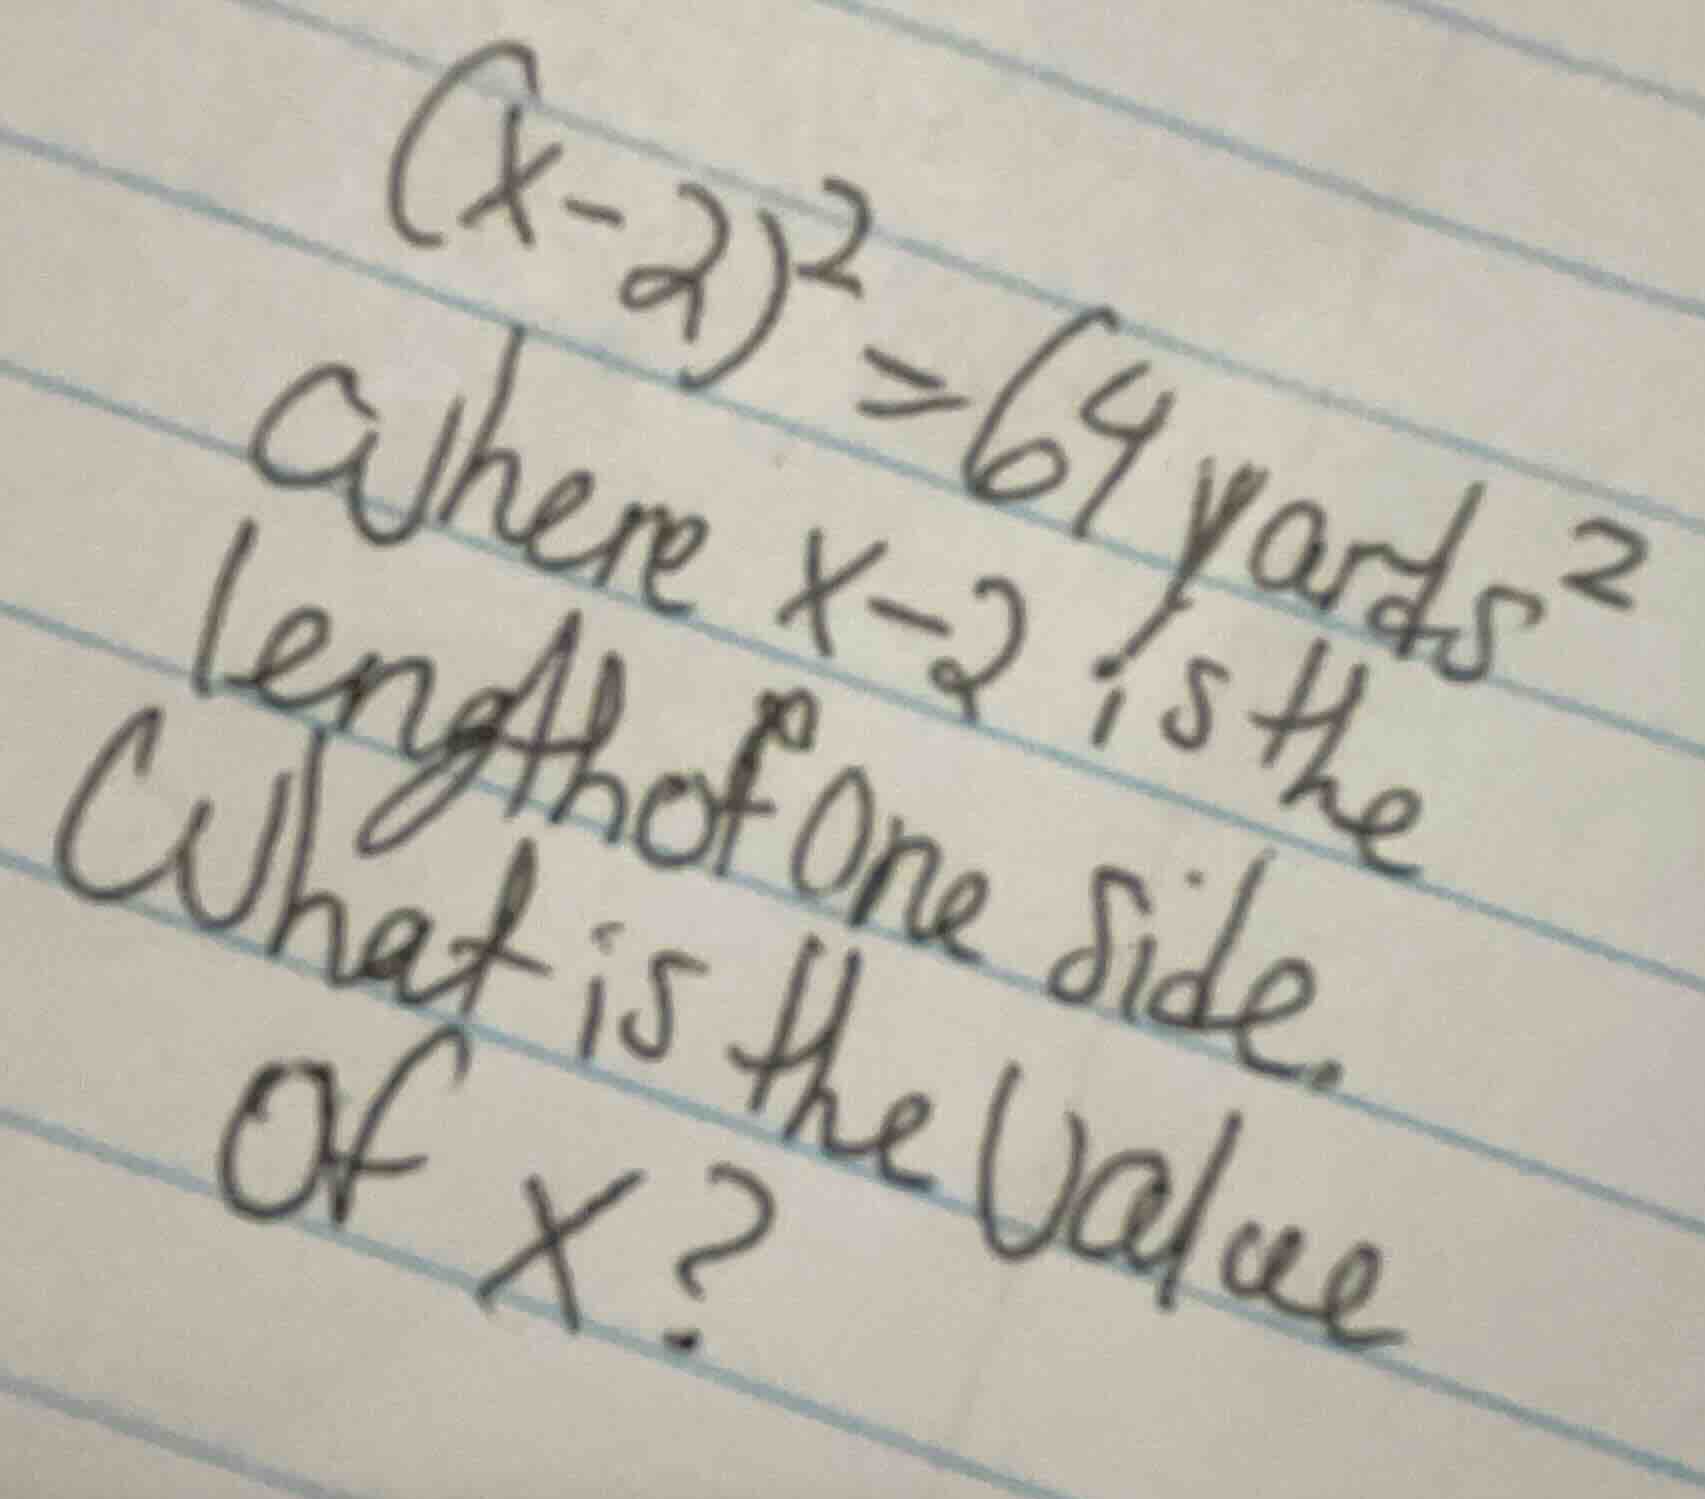 (x-2)² = 64 yards²
where x-2 is the
length of one side.
What is the value
of x?